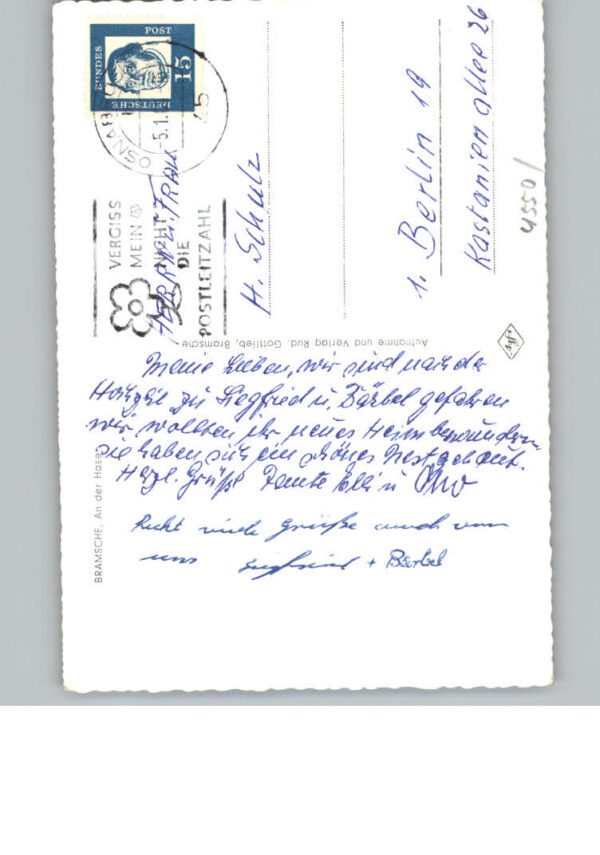 DEUTSCHE
BUNDES
POST
15
OSNABRÜCK
-5.1.6
VERGISS
MEIN
NICHT
DIE
POSTLEITZAHL
HERRN U. FRAU
H. Schulz
1. Berlin 19
Kastanienallee 26
4550/
Aufnahme und Verlag Rud. Gottlieb, Bramsche
BRAMSCHE, An der Hase
Meine Lieben, wir sind nach der
Hochzeit zu Siegfried u. Bärbel gefahren
wir wollten ihr neues Heim bewundern
sie haben sich ein schönes Nest gebaut.
Herzl. Grüße Tante u
Recht viele Grüße auch von
uns Siegfried + Bärbel